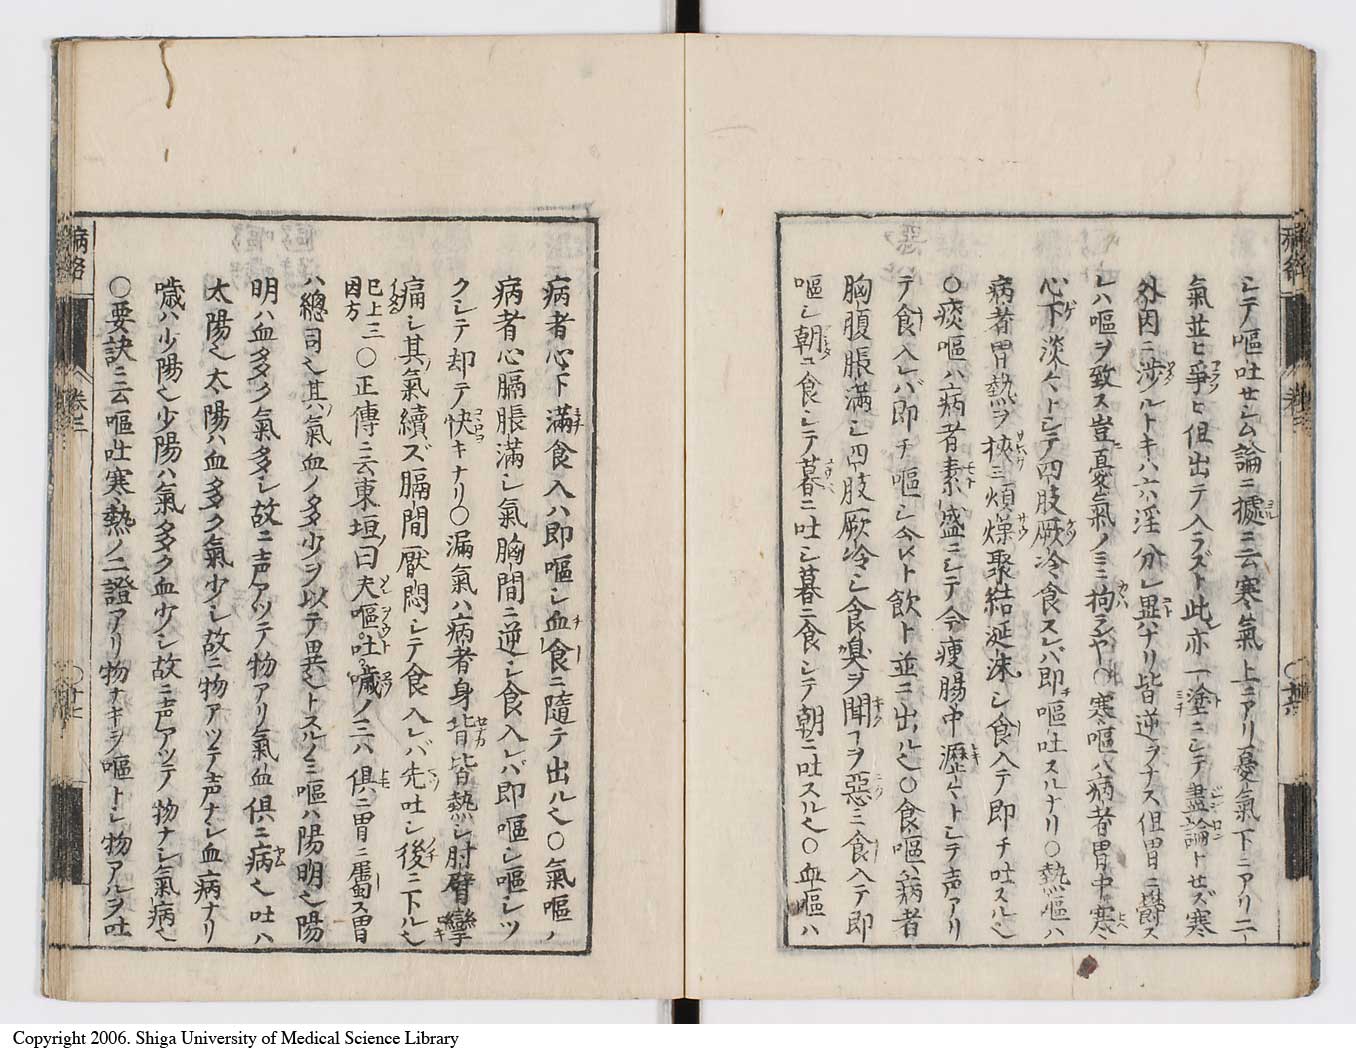 シテ嘔吐セシム論ニ據ニ云寒氣上ニアリ憂氣下ニアリ二
氣並ヒ爭ヒ但出テ入ラズト此亦一塗ニシテ盡論トセズ寒
外因ニ渉ルトキハ六淫分レ異ナリ皆逆ヲナス但胃ニ欝ス
レハ嘔ヲ致ス豈憂氣ノミニ拘ランヤ○寒嘔ハ病者胃中寒
心下淡々トシテ四肢厥冷食スレバ即嘔吐スルナリ○熱嘔ハ
病者胃熱ヲ挾ミ煩燥聚結涎沫シ食入テ即チ吐スル也
○痰嘔ハ病者素盛ニシテ今痩腸中瀝々トシテ声アリ
テ食入レバ即チ嘔シ食ト飲ト並ニ出ル也○食嘔ハ病者
胸腹脹満シ四肢厥冷シ食臭ヲ聞ヿヲ惡ミ食入テ即
嘔シ朝ニ食シテ暮ニ吐シ暮ニ食シテ朝ニ吐スル也○血嘔ハ
病者心下滿食入ハ即嘔シ血食ニ隨テ出ル也○氣嘔ノ
病者心膈脹満シ氣胸間ニ逆シ食入レバ即嘔シ嘔シツ
クシテ却テ快キナリ○漏氣ハ病者身背皆熱シ肘臂攣
痛シ其氣續ズ膈間厭悶シテ食入レバ先吐シ後ニ下ル也
已上三因方○正傳ニ云東垣曰夫嘔吐噦ノ三ハ俱ニ胃ニ屬ス胃
ハ總司也其氣血ノ多少ヲ以テ異也トスルノミ嘔ハ陽明也陽
明ハ血多ク氣多シ故ニ声アツテ物アリ氣血俱ニ病也吐ハ
太陽也太陽ハ血多ク氣少シ故ニ物アツテ声ナシ血病ナリ
噦ハ少陽也少陽ハ氣多ク血少シ故ニ声アツテ物ナシ氣病也
○要訣ニ云嘔吐寒熱ノ二證アリ物ナキヲ嘔トシ物アルヲ吐
卷三
○十七
Copyright 2006. Shiga University of Medical Science Library